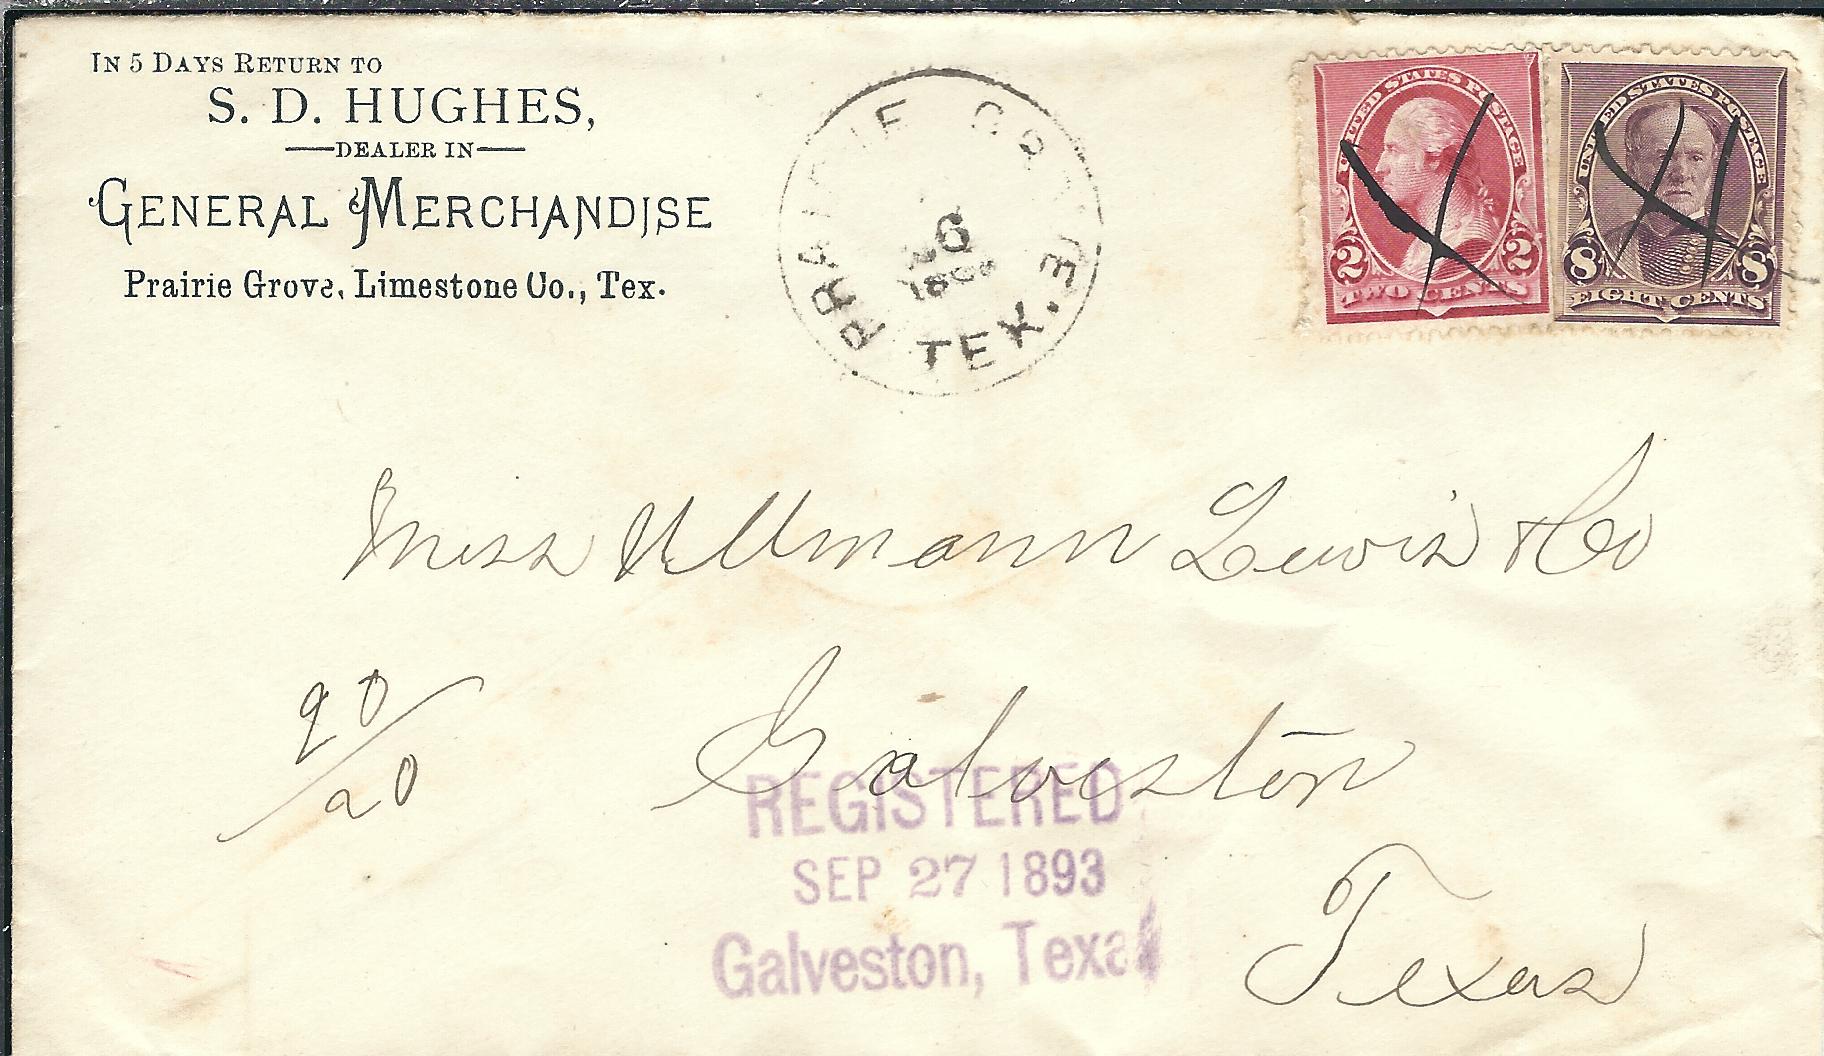 IN 5 DAYS RETURN TO
S. D. HUGHES,
DEALER IN
GENERAL MERCHANDISE
Prairie Grove, Limestone Co., Tex.
PRAIRIE
6
TEX.
UNITED STATES POSTAGE
2 2
TWO CENTS
UNITED STATES POSTAGE
8 8
EIGHT CENTS
Miss Ullmann Lewis & Co
90/20
Galveston
Texas
REGISTERED
SEP 27 1893
Galveston, Texas